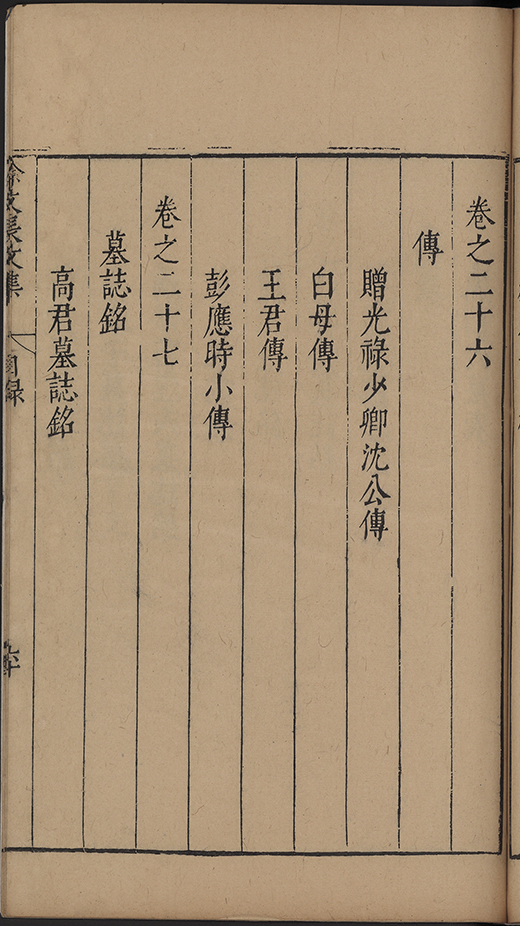 卷之二十六
傳
贈光祿少卿沈公傳
白母傳
王君傳
彭應時小傳
卷之二十七
墓誌銘
高君墓誌銘
徐文長文集
目録
六十